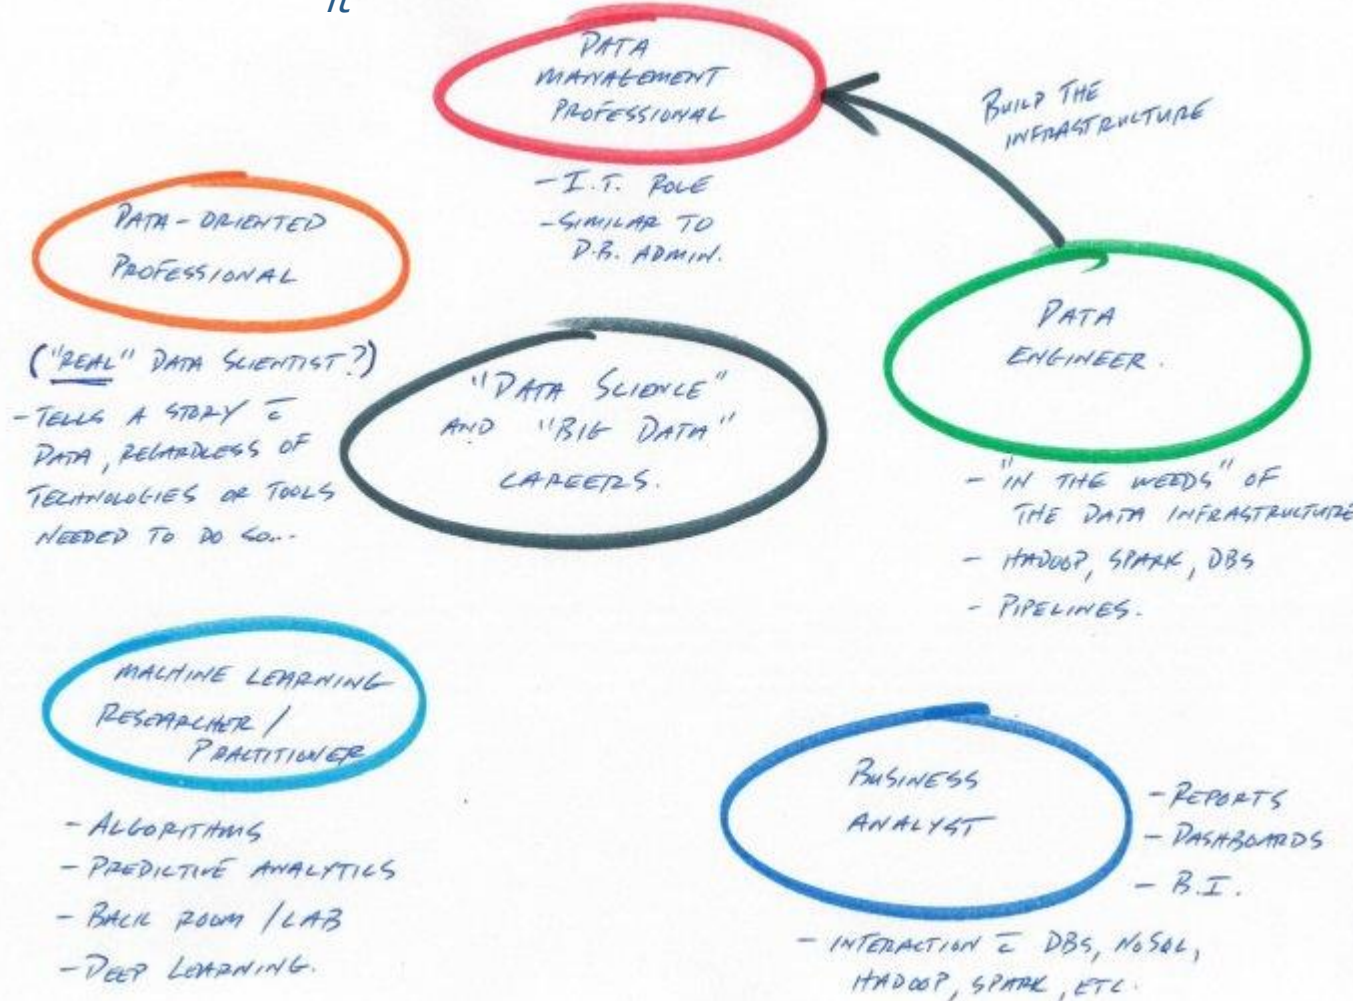 DATA
MANAGEMENT
PROFESSIONAL
- I.T. ROLE
- SIMILAR TO
D.B. ADMIN.
BUILD THE
INFRASTRUCTURE
DATA-ORIENTED
PROFESSIONAL
("REAL" DATA SCIENTIST?)
- TELLS A STORY c̄
DATA, REGARDLESS OF
TECHNOLOGIES OR TOOLS
NEEDED TO DO SO...
"DATA SCIENCE"
AND "BIG DATA"
CAREERS.
DATA
ENGINEER.
- "IN THE WEEDS" OF
THE DATA INFRASTRUCTURE
- HADOOP, SPARK, DBS
- PIPELINES.
MACHINE LEARNING
RESEARCHER /
PRACTITIONER
- ALGORITHMS
- PREDICTIVE ANALYTICS
- BACK ROOM / LAB
- DEEP LEARNING.
BUSINESS
ANALYST
- REPORTS
- DASHBOARDS
- B.I.
- INTERACTION c̄ DBS, NOSQL,
HADOOP, SPARK, ETC.